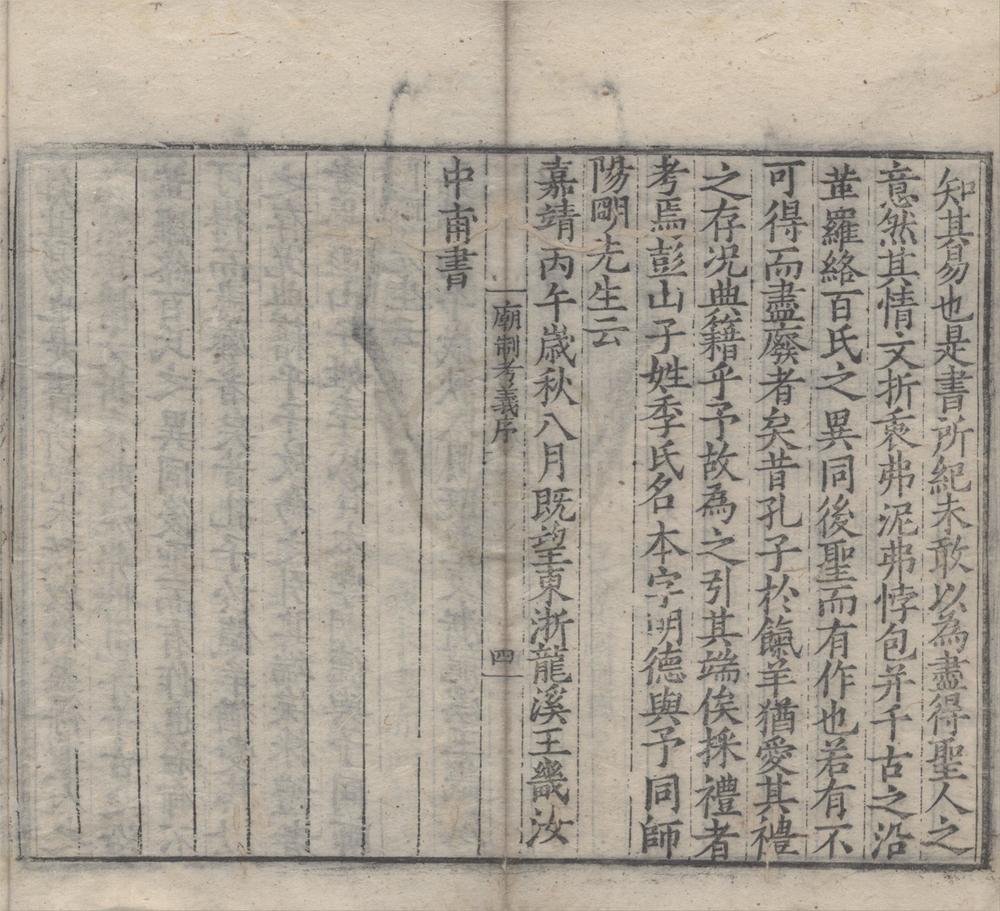 知其易也是書所紀未敢以為盡得聖人之
意然其情文折衷弗泥弗悖包并千古之沿
革羅絡百氏之異同後聖而有作也若有不
可得而盡廢者矣昔孔子於餼羊猶愛其禮
之存况典籍乎予故為之引其端俟採禮者
考焉彭山子姓季氏名本字明德與予同師
陽明先生云
嘉靖丙午歲秋八月既望東浙龍溪王畿汝
中甫書
廟制考義序
四